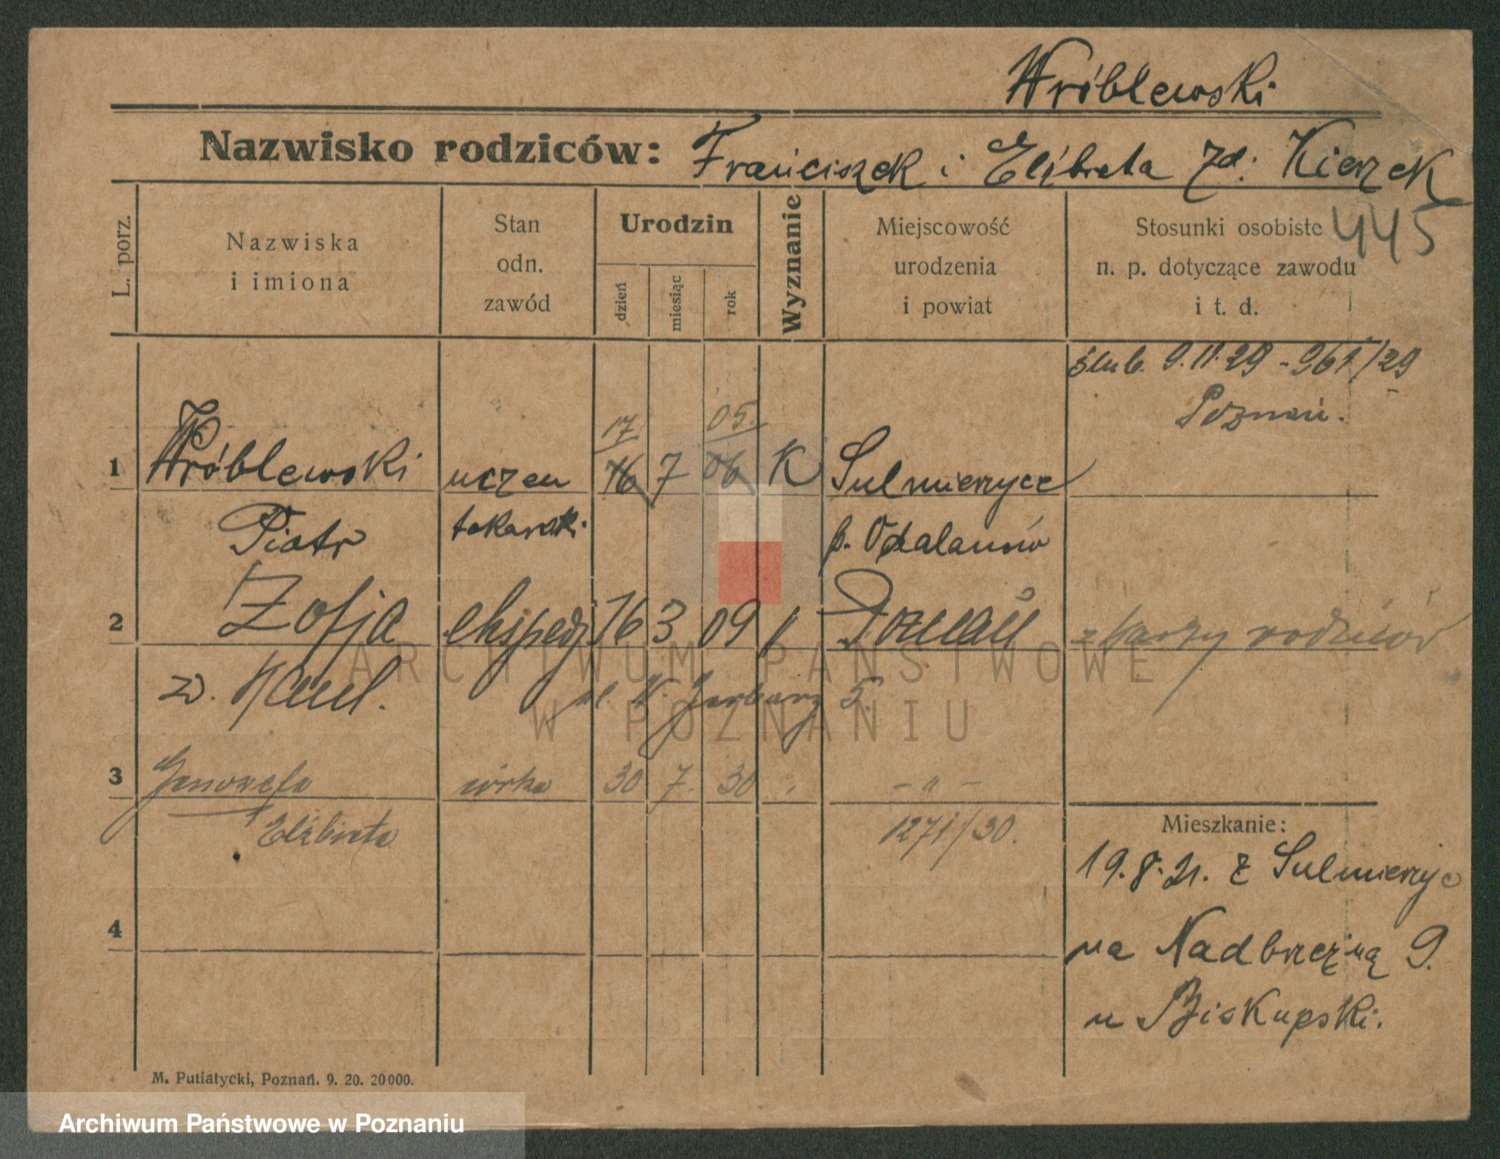 Wróblewski
Nazwisko rodziców: Franciszek i Elżbieta zd. Kierzek
445
L. porz.
Nazwiska
i imiona
Stan
odn.
zawód
Urodzin
dzień
miesiąc
rok
Wyznanie
Miejscowość
urodzenia
i powiat
Stosunki osobiste
n. p. dotyczące zawodu
i t. d.
ślub. 9.11.29 - 961/29
Poznań.
17 05.
1 Wróblewski uczeń 16 7 06 K Sulmierzyce
Piotr tokarski p. Odolanów
2 Zofja ekspedj 16 3 09 Poznań rodziców
z d. 5.
3 Genowefa córka 30 7. 30 - " -
Elżbieta 1271/30.
Mieszkanie:
19.8.21. z Sulmierzyc
na Nadbrzeżną 9.
u Biskupski.
4
M. Putiatycki, Poznań. 9. 20. 20000.
ARCHIWUM PAŃSTWOWE
W POZNANIU
Archiwum Państwowe w Poznaniu